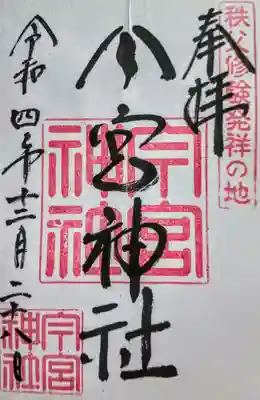 秩父修験発祥の地
奉拝
今宮神社
今宮
神社
令和四年十二月二十八日
今宮
神社